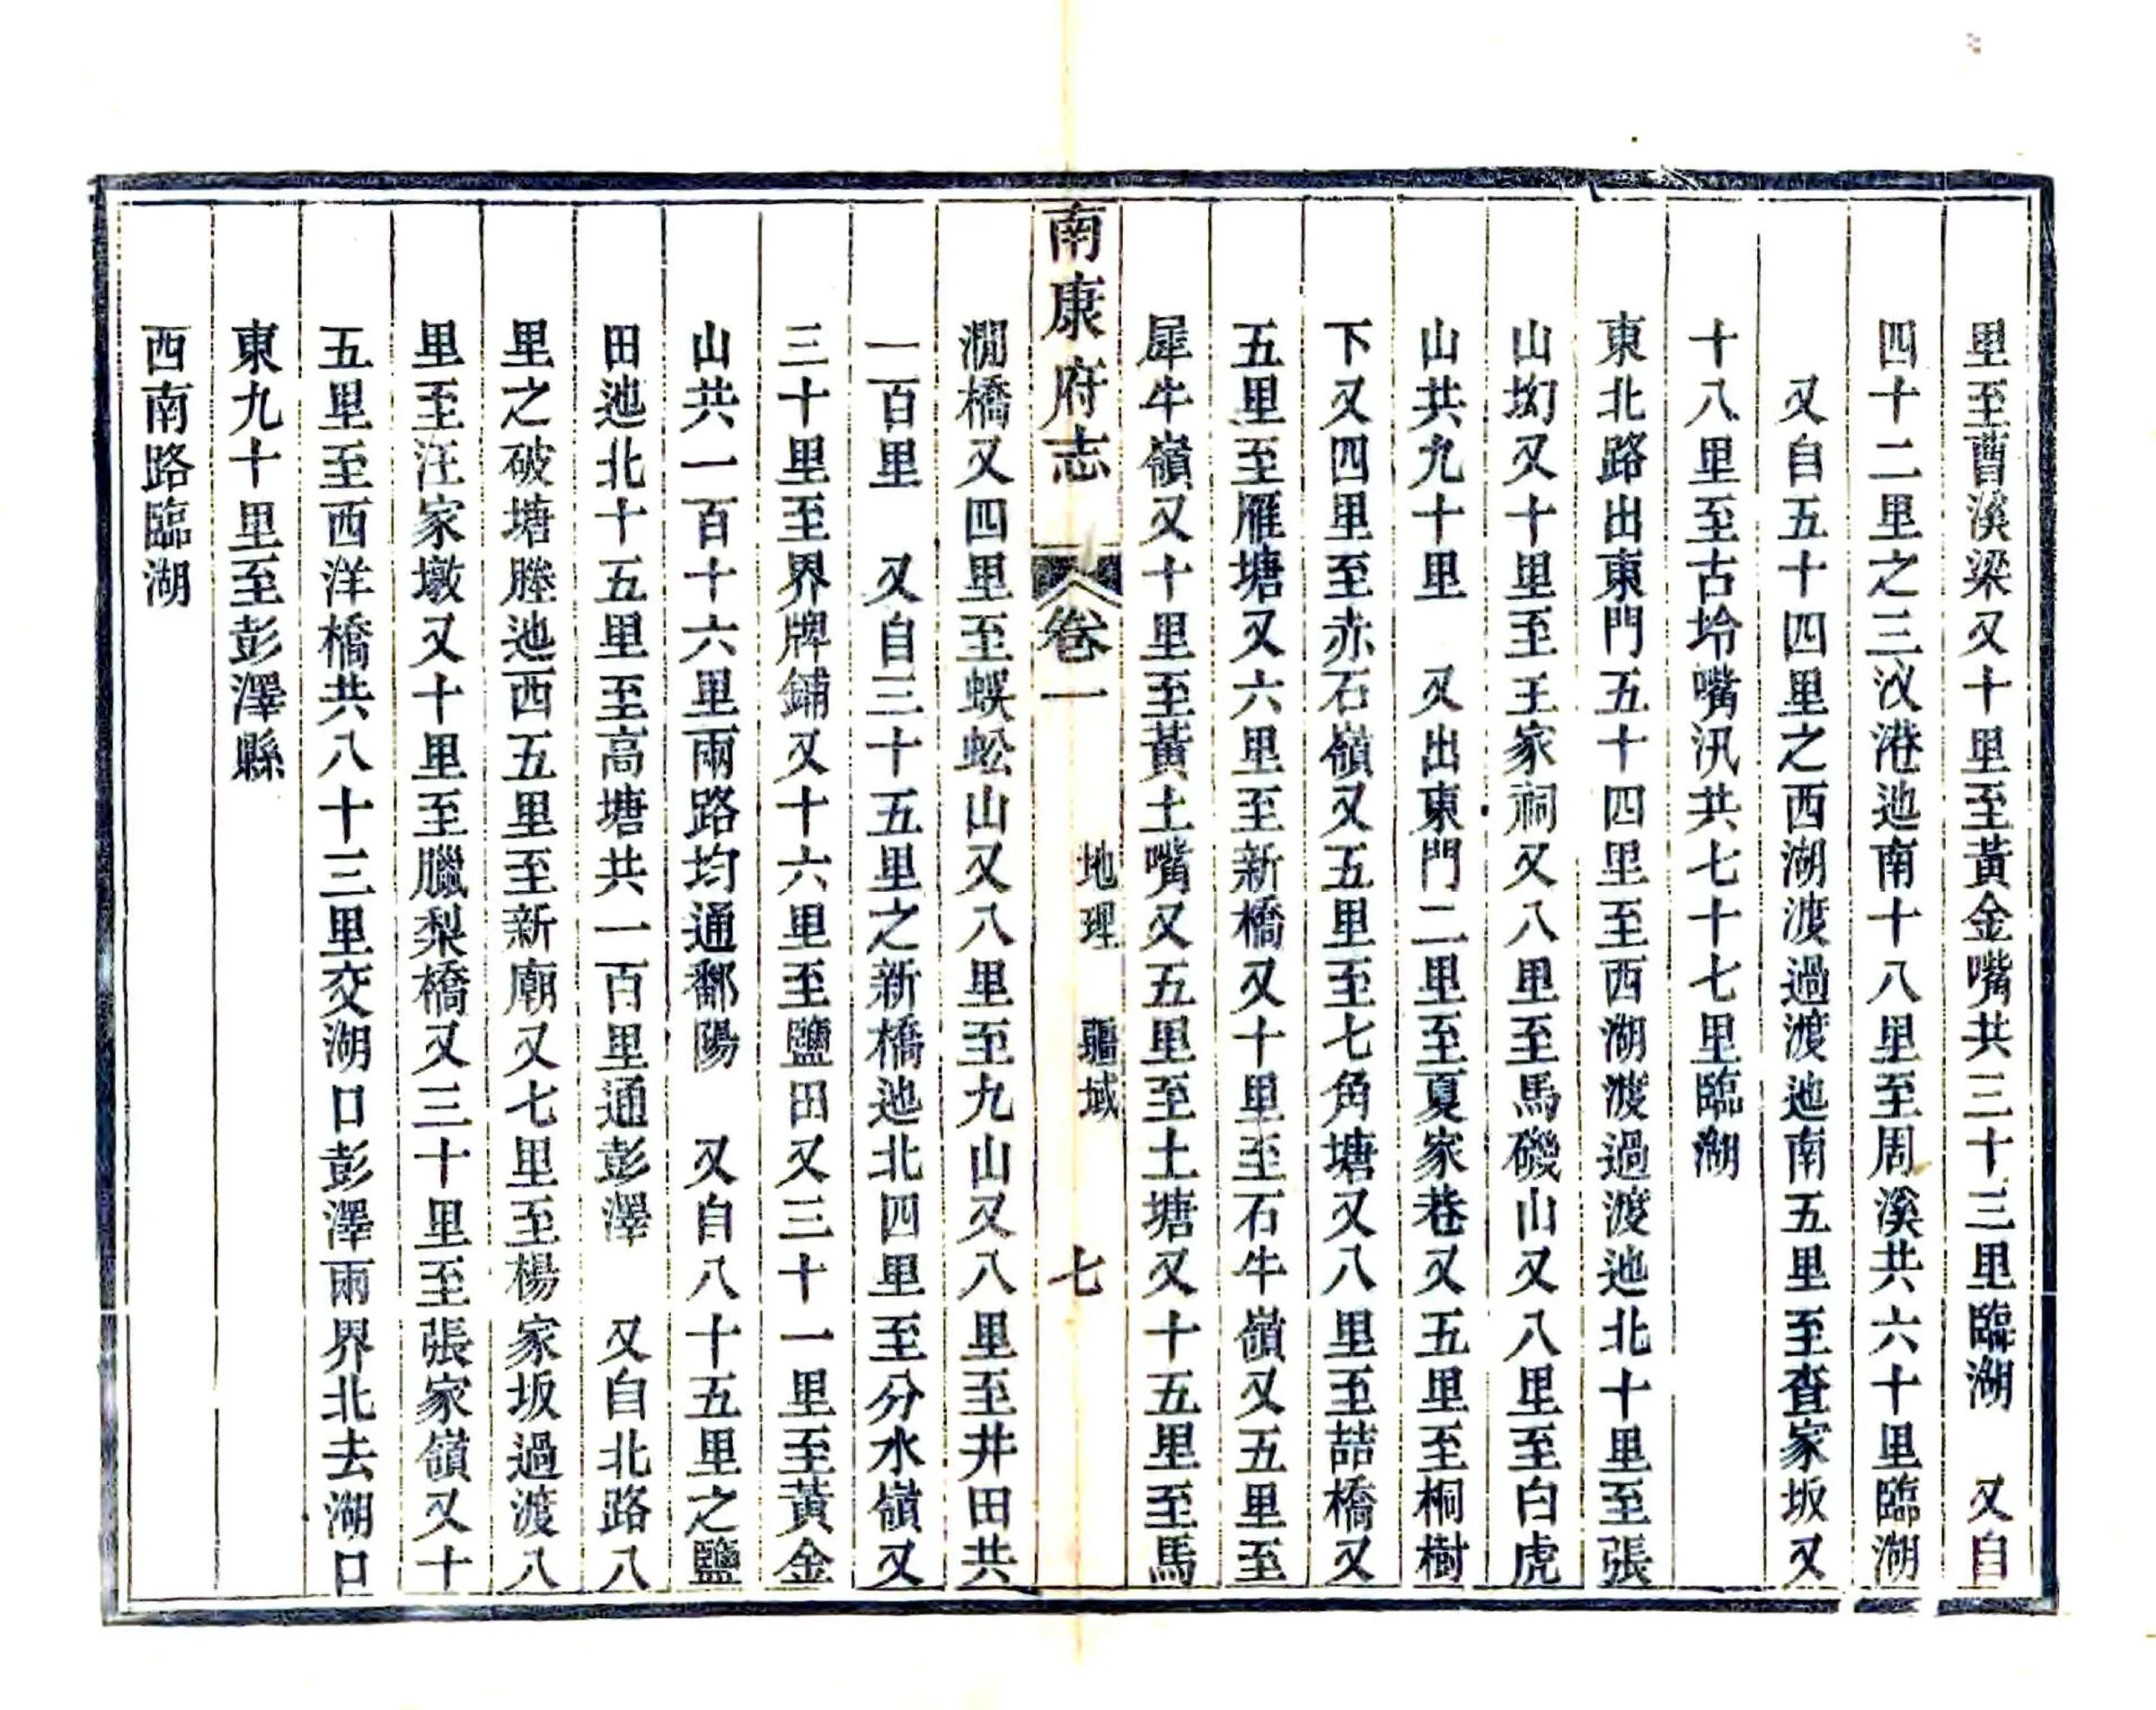 里至曹溪梁又十里至黃金嘴共三十三里臨湖　又自
四十二里之三汊港迤南十八里至周溪共六十里臨湖
又自五十四里之西湖渡過渡迤南五里至查家坂又
十八里至古坽嘴汛共七十七里臨湖
東北路出東門五十四里至西湖渡過渡迤北十里至張
山㘭又十里至王家祠又八里至馬磯山又八里至白虎
山共九十里　又出東門二里至夏家巷又五里至桐樹
下又四里至赤石嶺又五里至七角塘又八里至喆橋又
五里至雁塘又六里至新橋又十里至石牛嶺又五里至
犀牛嶺又十里至黃土嘴又五里至土塘又十五里至馬
南康府志　卷一　地理　疆域　七
澗橋又四里至蜈蚣山又八里至九山又八里至井田共
一百里　又自三十五里之新橋迤北四里至分水嶺又
三十里至界牌鋪又十六里至鹽田又三十一里至黃金
山共一百十六里兩路均通鄱陽　又自八十五里之鹽
田迤北十五里至高塘共一百里通彭澤　又自北路八
里之破塘塍迤西五里至新廟又七里至楊家坂過渡八
里至汪家墩又十里至臘梨橋又三十里至張家嶺又十
五里至西洋橋共八十三里交湖口彭澤兩界北去湖口
東九十里至彭澤縣
西南路臨湖